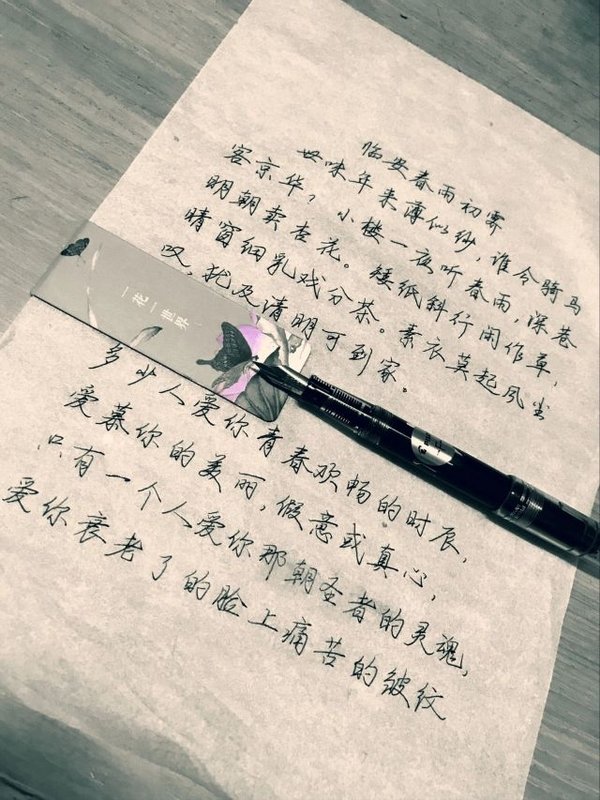 临安春雨初霁
世味年来薄似纱，谁令骑马
客京华，小楼一夜听春雨，深巷
明朝卖杏花。矮纸斜行闲作草，
晴窗细乳戏分茶。素衣莫起风尘
叹，犹及清明可到家。
一花一世界
多少人爱你青春欢畅的时辰，
爱慕你的美丽，假意或真心，
只有一个人爱你那朝圣者的灵魂，
爱你衰老了的脸上痛苦的皱纹